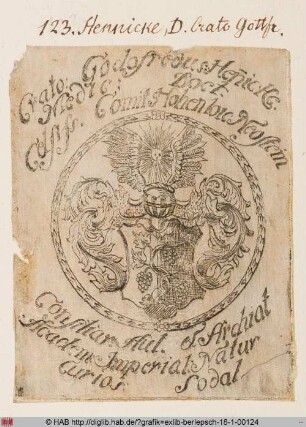 123. Henricke, D. Crato Gottfr.
Crato Godofredus Henricke
Medic: Doct.
Comit Hohenloic Neostein
Consiliar. Aul. et Archiat
Academ Imperial. Natur
curios Sodal
© HAB http://diglib.hab.de/?grafik=exlib-berlepsch-18-1-00124